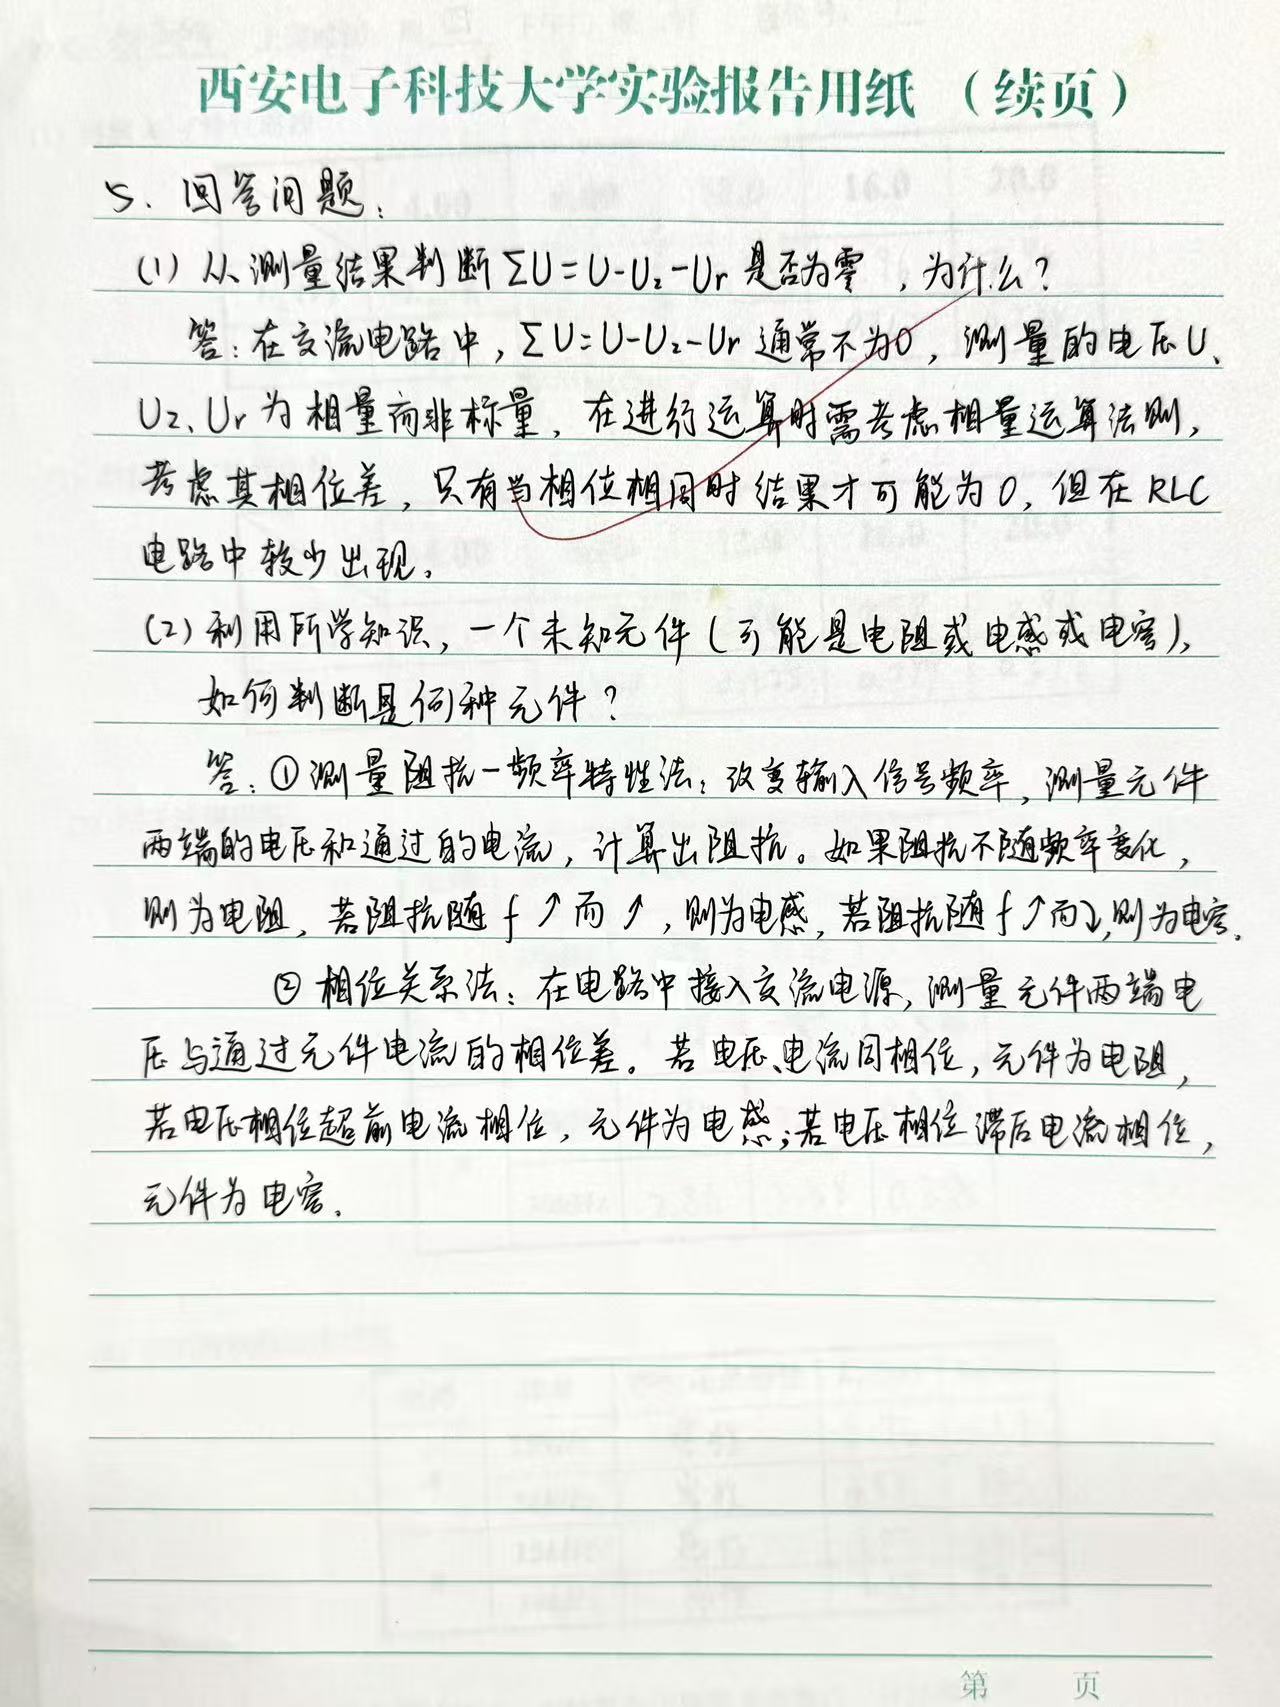 西安电子科技大学实验报告用纸（续页）
5、回答问题：
(1) 从测量结果判断∑U=U-U₂-Ur是否为零，为什么？
答：在交流电路中，∑U=U-U₂-Ur通常不为0，测量的电压U、
U₂、Ur为相量而非标量，在进行运算时需考虑相量运算法则，
考虑其相位差，只有当相位相同时结果才可能为0，但在RLC
电路中较少出现。
(2) 利用所学知识，一个未知元件（可能是电阻或电感或电容），
如何判断是何种元件？
答：①测量阻抗－频率特性法：改变输入信号频率，测量元件
两端的电压和通过的电流，计算出阻抗。如果阻抗不随频率变化，
则为电阻，若阻抗随f↗而↗，则为电感，若阻抗随f↗而↘，则为电容。
②相位关系法：在电路中接入交流电源，测量元件两端电
压与通过元件电流的相位差。若电压、电流同相位，元件为电阻，
若电压相位超前电流相位，元件为电感；若电压相位滞后电流相位，
元件为电容。
第 页